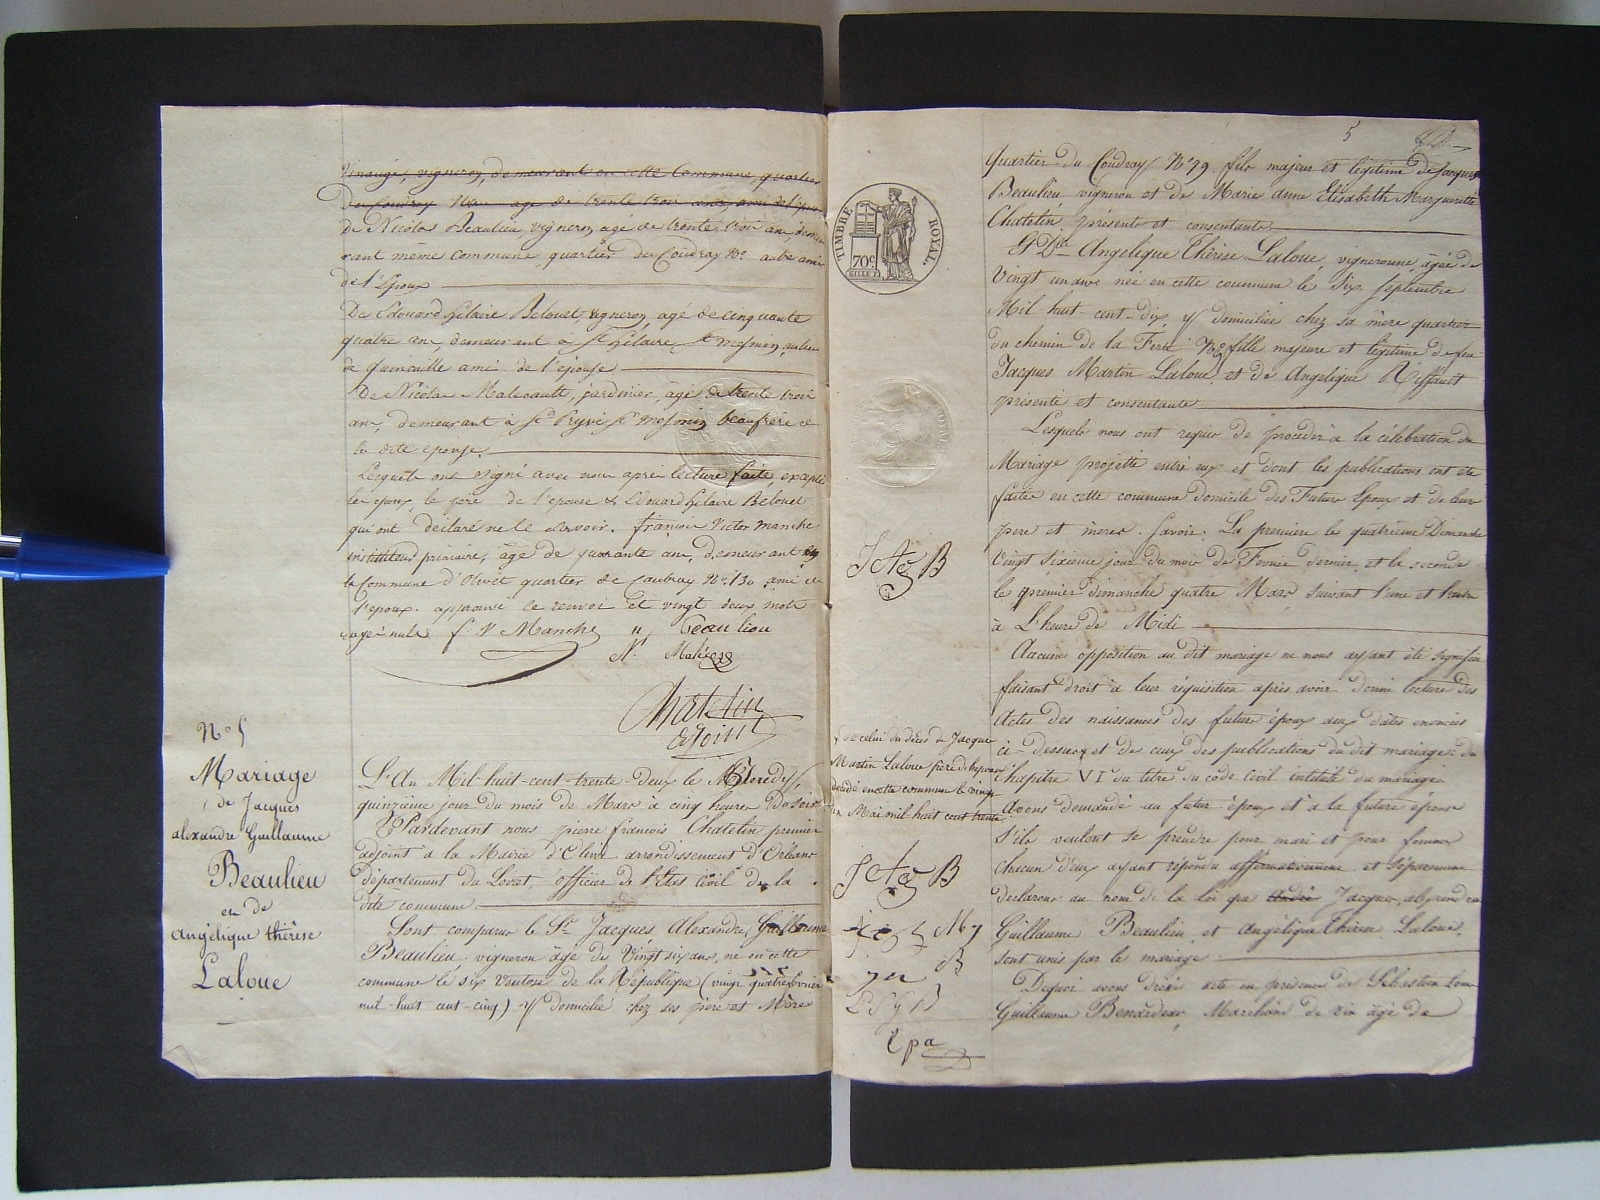 Vinaigé, vigneron, demeurant en cette Commune, quartier
du Coudray N.º agé de trente trois ans ami de l'époux
de Nicolas Beaulieu, vigneron agé de trente trois ans, demeu
rant même commune, quartier du Coudray N.º
de l'Epoux
De Edouard hilaire Belouet, vigneron, agé de cinquante
quatre ans, demeurant à St hilaire St mesmin, au lieu
de quinouille ami de l'épouse
De Nicolas Malecault, jardinier, agé de trente trois
ans, demeurant à St Pryvé St mesmin beaufrère de
la dite épouse.
Lesquels ont signé avec nous après lecture faite, excepté
les époux, le père de l'épouse & Edouard hilaire Belouet
qui ont déclaré ne le savoir. françois Victor manche
instituteur primaire, agé de quarante ans, demeurant
la Commune d'Olivet quartier de Caubray N.º 130 ami de
l'époux. approuvé le renvoi et vingt deux mots
rayés nuls f. V Manche Beaulieu
N. Malec
Chatelin
adjoint
N.º 5
Mariage
de Jacques
alexandre Guillaume
Beaulieu
et de
angélique thérèse
Laloue
L'An Mil-huit-cent-trente-deux le
quinzième jour du mois de Mars à cinq heures du soir
Pardevant nous pierre françois Chatelin premier
adjoint à la Mairie d'Olivet arrondissement d'Orléans
département du Loiret, officier de l'Etat civil de la
dite commune.
Sont comparus le Sr. Jacques Alexandre Guillaume
Beaulieu vigneron âgé de Vingt six ans, né en cette
commune le six Ventose de la République (vingt quatre fevrier
mil-huit cent-cinq) y domicilié chez ses père et Mère
5
Quartier du Coudray N.º 79. fils majeur et légitime de Jacques
Beaulieu vigneron et de Marie anne Elisabeth Marguerite
Chatelin présents et consentants
Et Dlle Angelique Thérèse Laloue, vigneronne, agée de
Vingt un ans née en cette commune le Six Septembre
Mil-huit-cent-dix, y domiciliée chez sa mère quartier
du chemin de la Ferté fille majeure et légitime de feu
Jacques Martin Laloue et de Angélique Riffault
présente et consentante
Lesquels nous ont requis de procéder à la célébration du
Mariage projetté entre eux et dont les publications ont été
faites en cette commune domicile des Futurs Epoux et de leurs
père et mères. Savoir: La première le quatrième Dimanche
Vingt sixième jour du mois de Fevrier dernier, et la seconde
le premier dimanche quatre Mars suivant l'une et l'autre
à L'heure de Midi
Aucune opposition au dit mariage ne nous ayant été signifiée
faisant droit à leur réquisition après avoir donné lecture des
Actes des naissances des futurs époux aux dates énoncées
ci-dessus, et de ceux des publications du dit mariage: du
Chapitre VI du titre du code Civil intitulé du mariage
avons demandé au futur époux et à la future épouse
S'ils veulent se prendre pour mari et pour femme
chacun d'eux ayant répondu affirmativement et séparément
déclarons au nom de la loi que André Jacques alexandre
Guillaume Beaulieu et Angélique Thérèse Laloue,
sont unis par le mariage
Dequoi avons dressé acte en présence de Sébastien Louis
Guillaume Benardeau, Marchand de vin âgé de
TIMBRE ROYAL.
70c
celui du décès de Jacques
Martin Laloue père de l'épouse
décédé en cette commune le vingt
un Mai mil huit cent trente